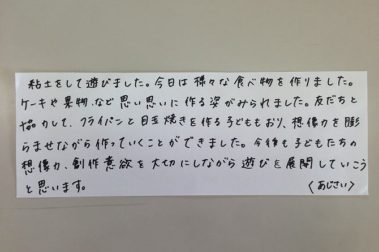 粘土をして遊びました。今日は様々な食べ物を作りました。
ケーキや果物など思い思いに作る姿がみられました。友だちと
協力して、フライパンと目玉焼きを作る子どももおり、想像力を膨
らませながら作っていくことができました。今後も子どもたちの
想像力、創作意欲を大切にしながら遊びを展開していこう
と思います。
〈あじさい〉